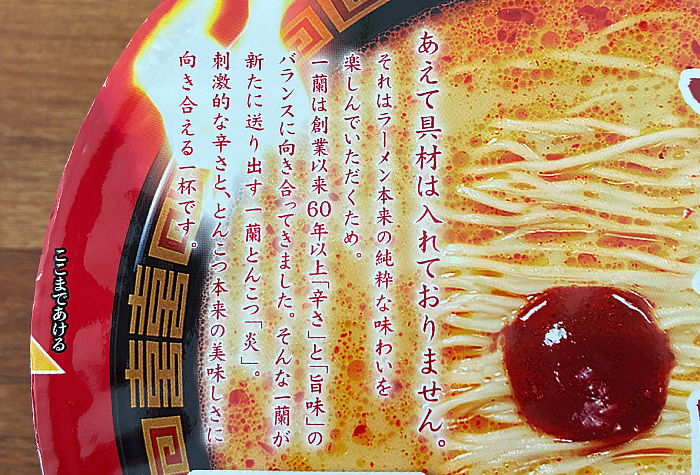 あえて具材は入れておりません。
それはラーメン本来の純粋な味わいを
楽しんでいただくため。
一蘭は創業以来60年以上「辛さ」と「旨味」の
バランスに向き合ってきました。そんな一蘭が
新たに送り出す 一蘭とんこつ「炎」。
刺激的な辛さと、とんこつ本来の美味しさに
向き合える一杯です。
ここまであける